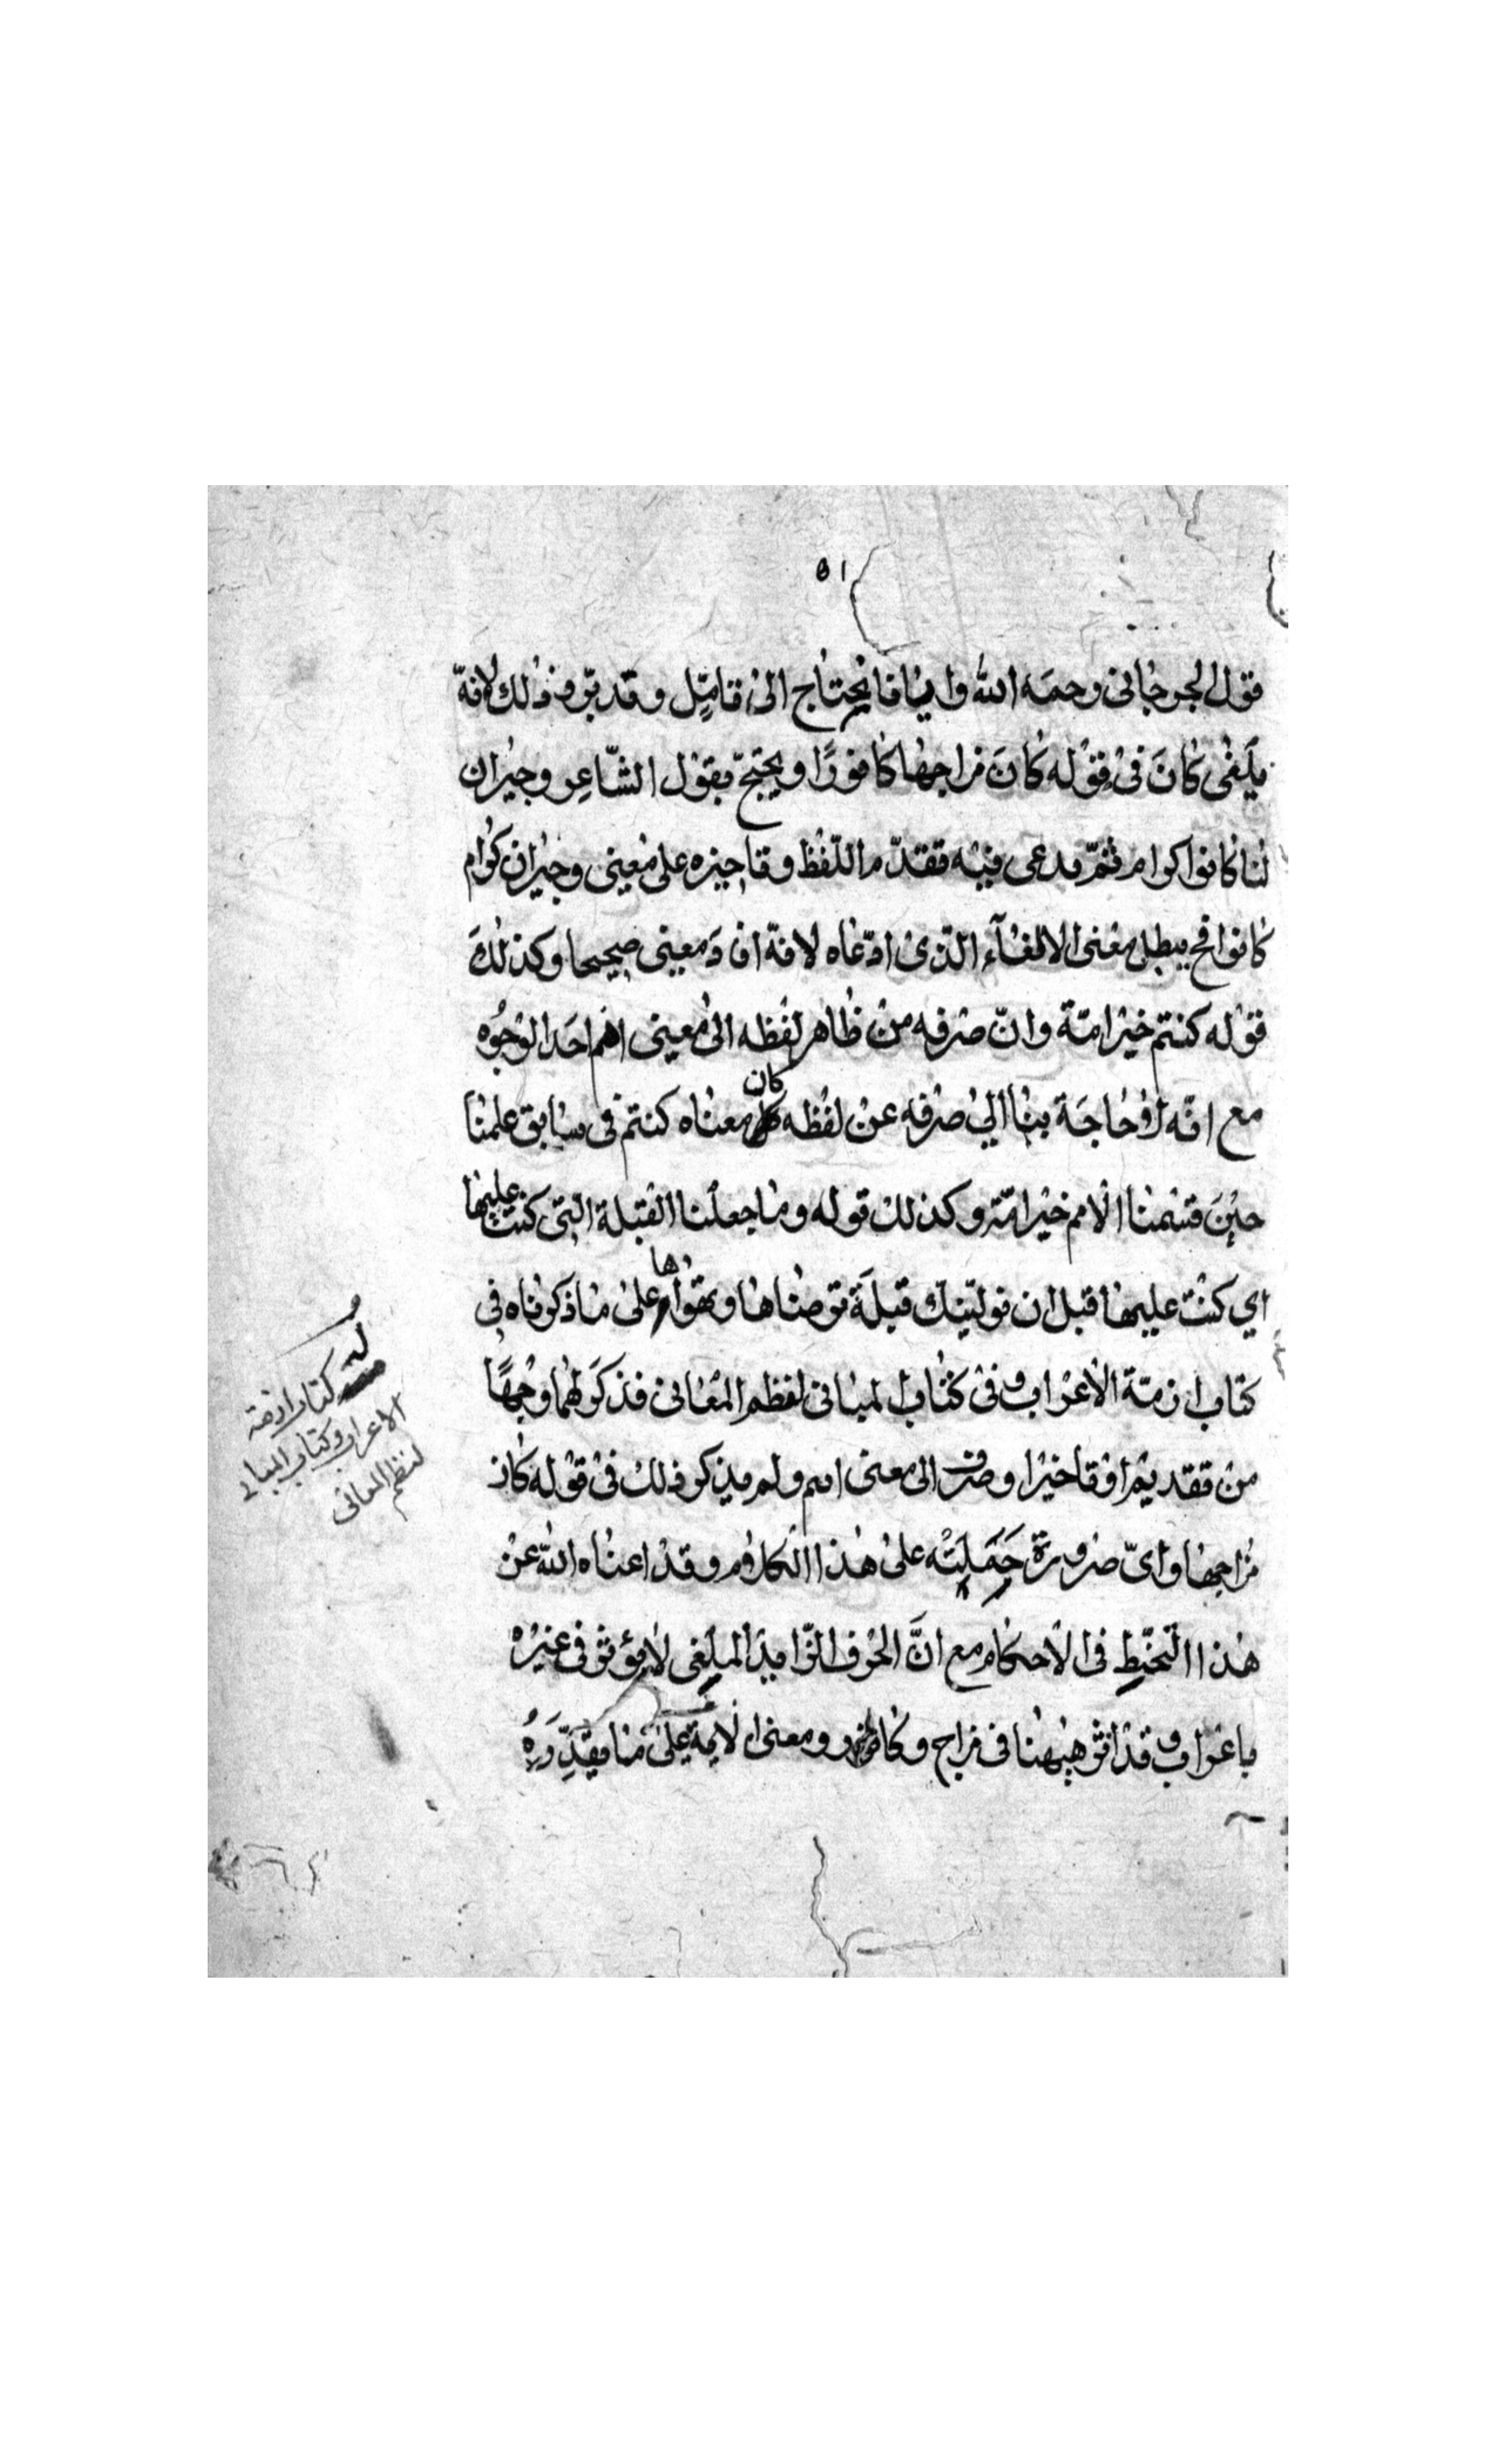 ٥١
قول الجرجاني رحمه الله وايانا يحتاج الى تامل وتدبر وذلك لانه
يلغى كان في قوله كان مزاجها كافورًا ويحتجّ بقول الشّاعر وجيران
لنا كانوا كرام ثمّ يدعى فيه تقدّم اللّفظ وتاخيره على معنى وجيران كرام
كانوا فح يبطل معنى الالغآء الّذى ادّعاه لانّه افادَ معنى صحيحا وكذلكَ
قوله كنتم خير امّة وانّ صرفه من ظاهر لفظه الى معنى احد الوجوه
مع انّه لا حاجَة بنا الي صرفه عن لفظه كان معناه كنتم فى سابق علمنا
حينَ قسمنا الامم خير امّة وكذلك قوله وما جعلنا القبلة التى كنت عليها
اي كنت عليها قبل ان نولّينك قبلَة ترضاها على ما ذكرناه في
كتاب ازمّة الاعراب وفى كتاب المبانى لنظم المعانى فذكرَ لهما وجهًا
من تقديم او تاخير او صرف الى معنى اهم ولم يذكر ذلك فى قوله كان
مزاجها واىّ ضرورة حَمَلَتْه على هذا الكلام وقد اعناه الله عن
هذا التخبّط فى الاحكام مع انَّ الحرف الزّايد الملغى لا يؤثر فى غيره
باعراب وقد اثر هيهنا فى مزاج وكافور ومعنى الاية على ما يقدِّرَهُ
له
كتاب ازمة
الاعراب وكتاب المبانى
لنظم المعانى